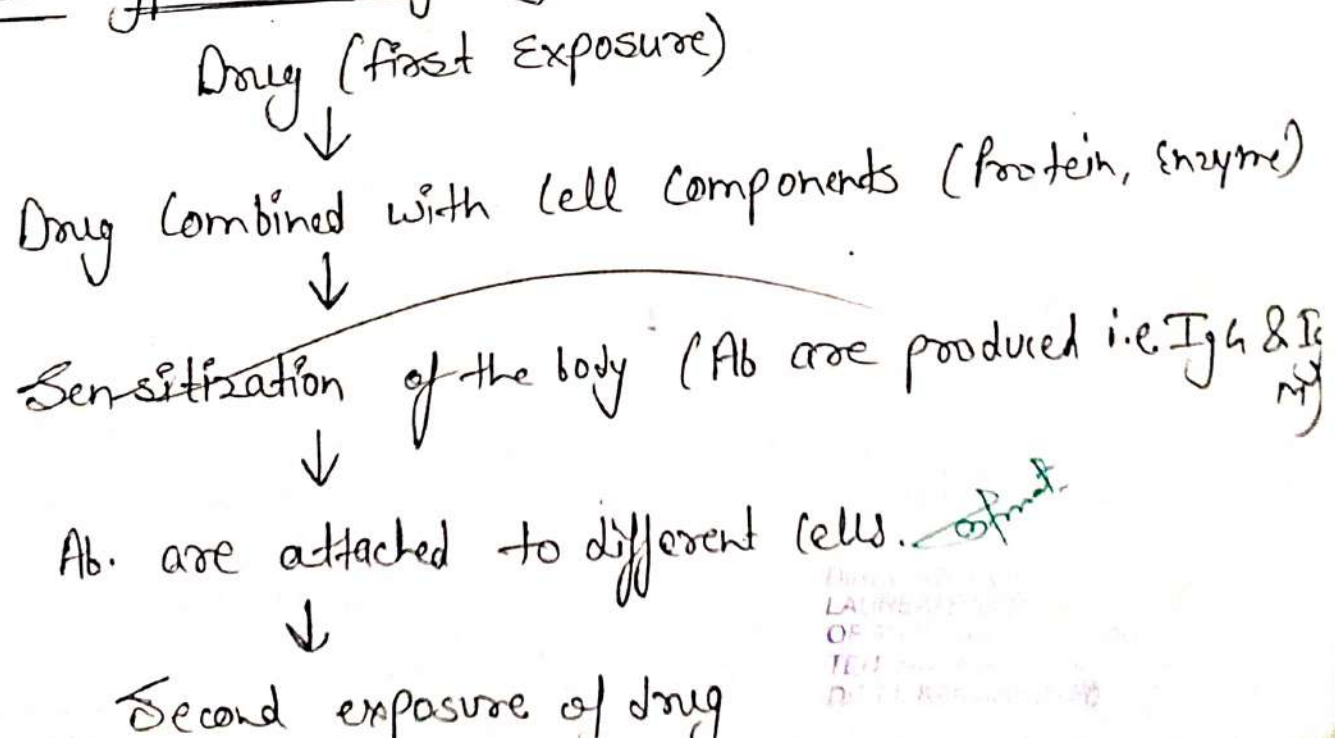 Drug (first Exposure)
↓
Drug Combined with Cell Components (Protein, Enzyme)
↓
Sensitization of the body (Ab are produced i.e. IgG &
↓
Ab. are attached to different Cells.
↓
Second exposure of drug